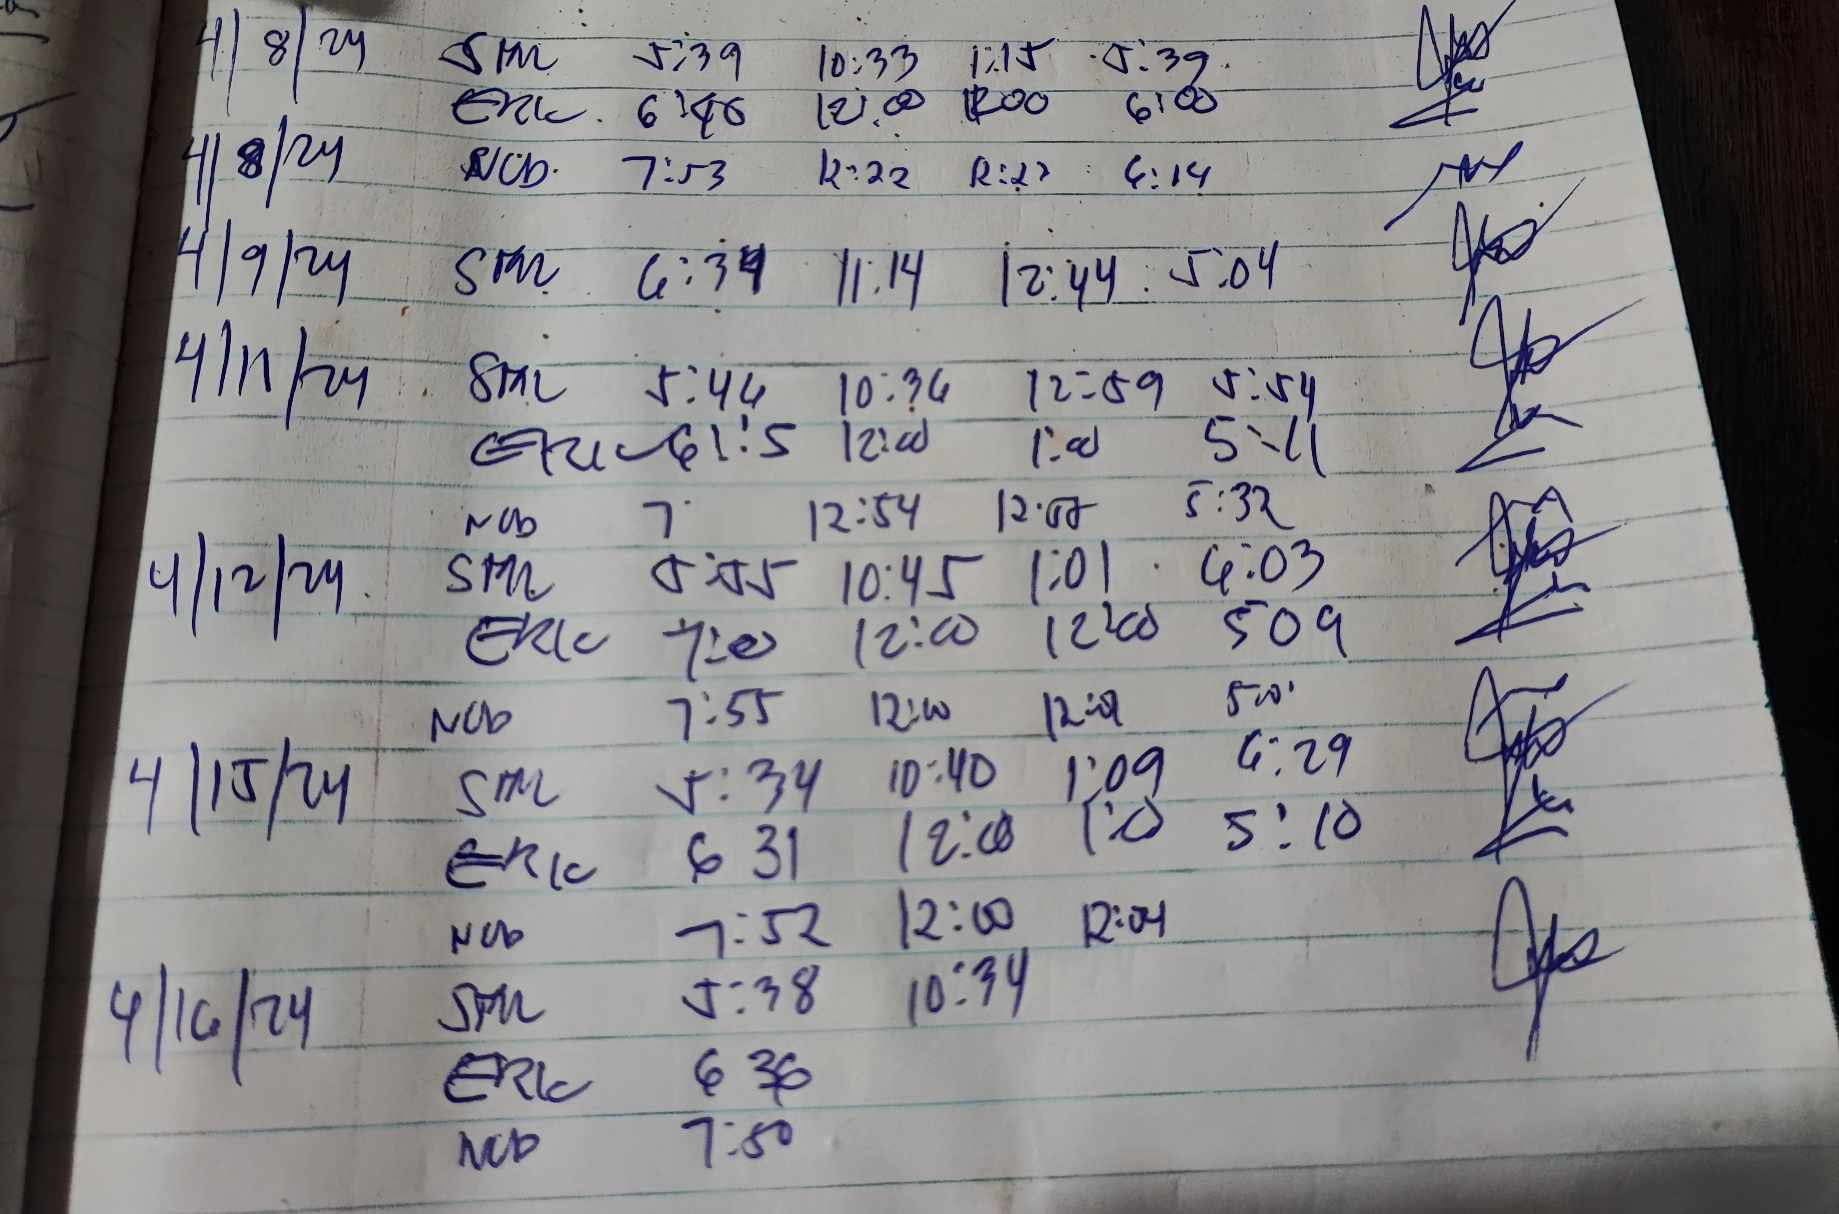 4/8/24 SML 5:39 10:33 1:15 5:39
ERIC 6:46 12:00 1:00 6:00
4/8/24 NCD 7:53 12:22 12:27 6:14
4/9/24 SML 6:34 11:14 12:44 5:04
4/11/24 SML 5:46 10:36 12:59 5:54
ERIC 61:5 12:00 1:00 5:11
NCD 7 12:54 5:32
4/12/24 SML 5:55 10:45 1:01 6:03
ERIC 7:00 12:00 12:00 509
NCD 7:55 12:00
4/15/24 SML 5:34 10:40 1:09 6:29
ERIC 6 31 12:00 1:0 5:10
NCD 7:52 12:00 12:04
4/16/24 SML 5:38 10:34
ERIC 6 36
NCD 7:50